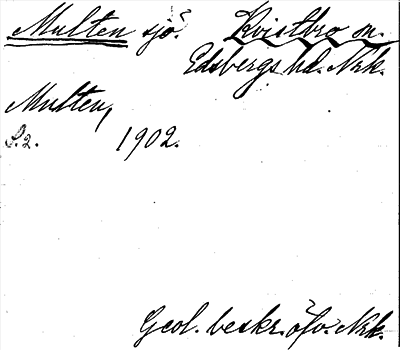 Multen sjö. Kvistbro sn.
Edsbergs hd. Nrk.
Multen,
S. 2. 1902.
Geol. beskr. öfv. Nrk.